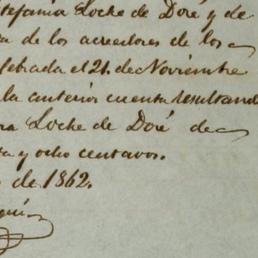 tefania Loche de Doré y de
a de los acreedores de los
lebrada el 21. de Noviembre
la anterior cuenta resultand
ra Loche de Doré de
ta y ocho centavos.
de 1862.